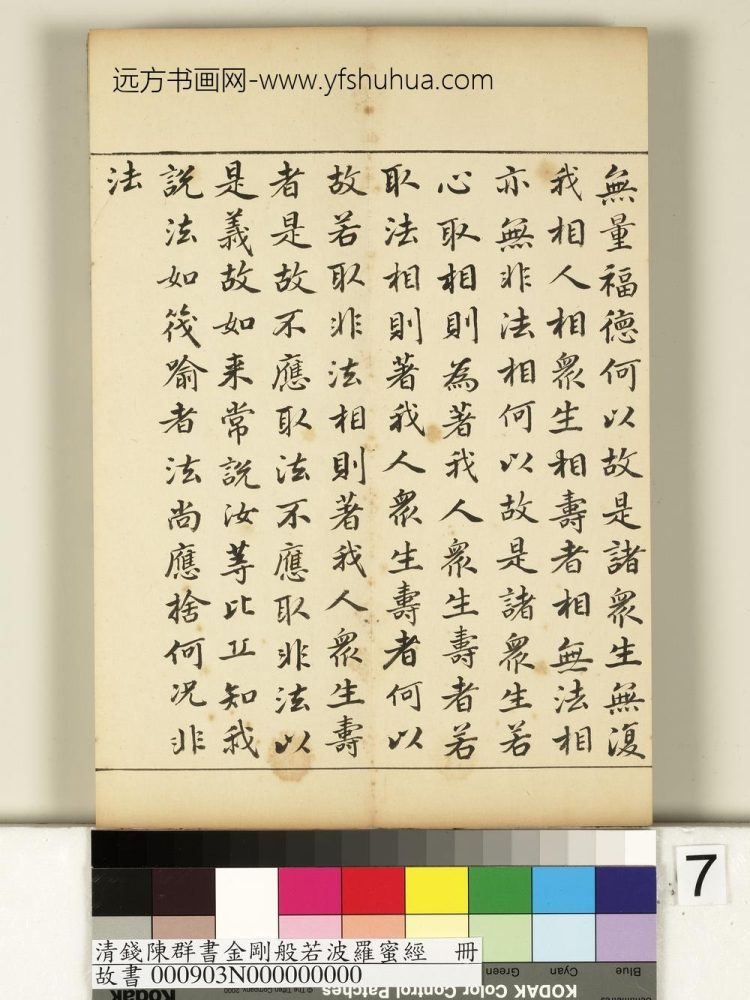 远方书画网-www.yfshuhua.com
無量福德何以故是諸眾生無復
我相人相眾生相壽者相無法相
亦無非法相何以故是諸眾生若
心取相則為著我人眾生壽者若
取法相則著我人眾生壽者何以
故若取非法相則著我人眾生壽
者是故不應取法不應取非法以
是義故如来常說汝等比丘知我
說法如筏喻者法尚應捨何况非
法
7
清錢陳群書金剛般若波羅蜜經 冊
故書 000903N000000000
Green Cyan Blue
KODAK Color Control Patches
Kodak